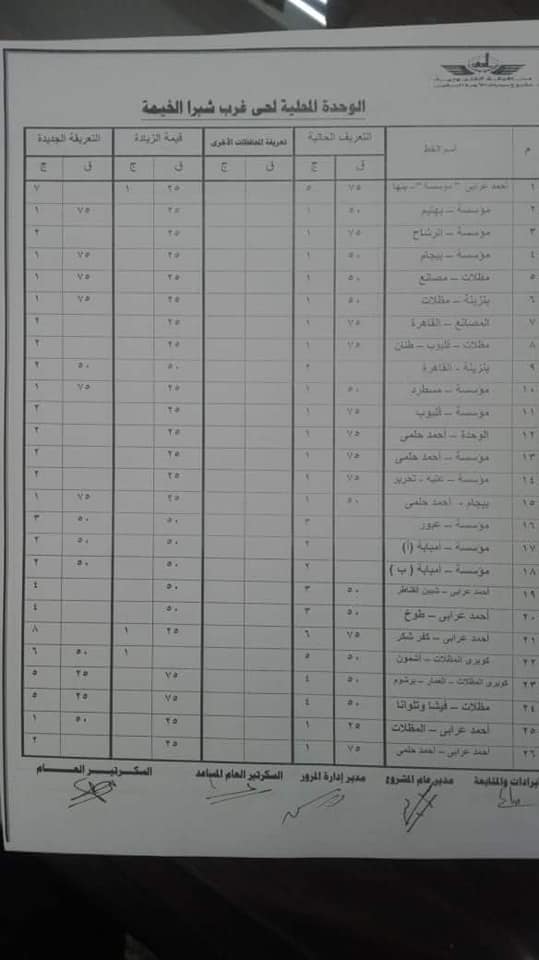 الوحدة المحلية لحى غرب شبرا الخيمة
م | اسم الخط | التعريف الحالية | تعريفة المحافظات الأخرى | قيمة الزيادة | التعريفة الجديدة
ق ج ق ج ق ج ق ج
١ أحمد عرابى " مؤسسة " – بنها ٧٥ ٥ ٢٥ ١ ٧
٢ مؤسسة – بهتيم ٥٠ ١ ٢٥ ٧٥ ١
٣ مؤسسة – الرشاح ٧٥ ١ ٢٥ ٢
٤ مؤسسة – بيجام ٥٠ ١ ٢٥ ٧٥ ١
٥ مظلات – مصانع ٥٠ ١ ٢٥ ٧٥ ١
٦ بنزينة – مظلات ٥٠ ١ ٢٥ ٧٥ ١
٧ المصانع – القاهرة ٧٥ ١ ٢٥ ٢
٨ مظلات – قليوب – طنان ٧٥ ١ ٢٥ ٢
٩ بنزينة - القاهرة ٢ ٥٠ ٥٠ ٢
١٠ مؤسسة – مسطرد ٥٠ ١ ٢٥ ٧٥ ١
١١ مؤسسة – قليوب ٧٥ ١ ٢٥ ٢
١٢ الوحدة – أحمد حلمى ٧٥ ١ ٢٥ ٢
١٣ مؤسسة – أحمد حلمى ٧٥ ١ ٢٥ ٢
١٤ مؤسسة – عتبه - تحرير ٧٥ ١ ٢٥ ٢
١٥ بيجام - أحمد حلمى ٥٠ ١ ٢٥ ٧٥ ١
١٦ مؤسسة – عبور ٣ ٥٠ ٥٠ ٣
١٧ مؤسسة – امبابة (أ) ٢ ٥٠ ٥٠ ٢
١٨ مؤسسة – امبابة ( ب ) ٢ ٥٠ ٥٠ ٢
١٩ أحمد عرابى – شبين القناطر ٥٠ ٣ ٥٠ ٤
٢٠ أحمد عرابى – طوخ ٥٠ ٣ ٥٠ ٤
٢١ أحمد عرابى – كفر شكر ٧٥ ٦ ٢٥ ١ ٨
٢٢ كوبرى المظلات – أشمون ٥٠ ٥ ١ ٥٠ ٦
٢٣ كوبرى المظلات – العمار – برشوم ٥٠ ٤ ٧٥ ٢٥ ٥
٢٤ مظلات – فيشا وتلوانا ٥٠ ٤ ٧٥ ٢٥ ٥
٢٥ أحمد عرابى – المظلات ٢٥ ١ ٢٥ ٥٠ ١
٢٦ أحمد عرابى – أحمد حلمى ٧٥ ١ ٢٥ ٢
والمتابعة مدير عام المشروع مدير إدارة المرور السكرتير العام المساعد السكرتير العام